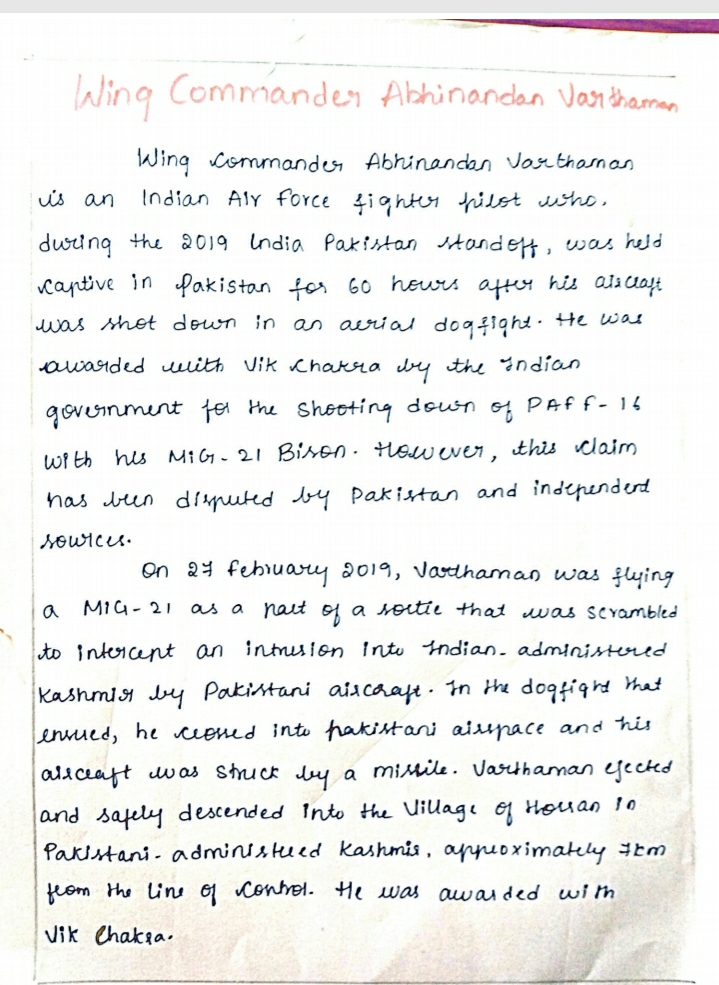 Wing Commander Abhinandan Varthaman
Wing Commander Abhinandan Varthaman
is an Indian Air Force fighter pilot who.
during the 2019 India Pakistan standoff, was held
captive in Pakistan for 60 hours after his aircraft
was shot down in an aerial dogfight. He was
awarded with Vik Chakra by the Indian
government for the shooting down of PAF F-16
with his MiG-21 Bison. However, this claim
has been disputed by Pakistan and independent
sources.
On 27 February 2019, Varthaman was flying
a MIG-21 as a part of a sortie that was scrambled
to intercept an intrusion into Indian-administered
Kashmir by Pakistani aircraft. In the dogfight that
ensued, he crossed into pakistani airspace and his
aircraft was struck by a missile. Varthaman ejected
and safely descended into the Village of Horran in
Pakistani-administered Kashmir, approximately 7km
from the line of control. He was awarded with
Vik Chakra.